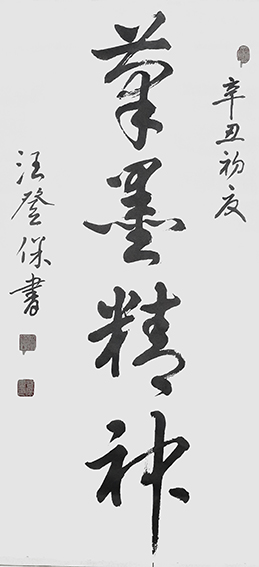 辛丑初夏
筆墨精神
汪登保書